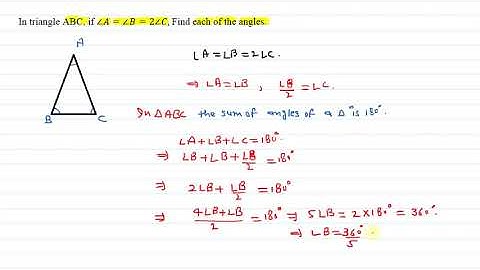 In triangle ABC, if ∠A = ∠B = 2∠C, Find each of the angles.
A
B
C
∠A = ∠B = 2∠C.
⇒ ∠A = ∠B , ∠B/2 = ∠C.
In △ABC the sum of angles of a △ is 180°.
∠A + ∠B + ∠C = 180°
⇒ ∠B + ∠B + ∠B/2 = 180°
⇒ 2∠B + ∠B/2 = 180°
⇒ 4∠B + ∠B/2 = 180° ⇒ 5∠B = 2 × 180° = 360°.
⇒ ∠B = 360°/5